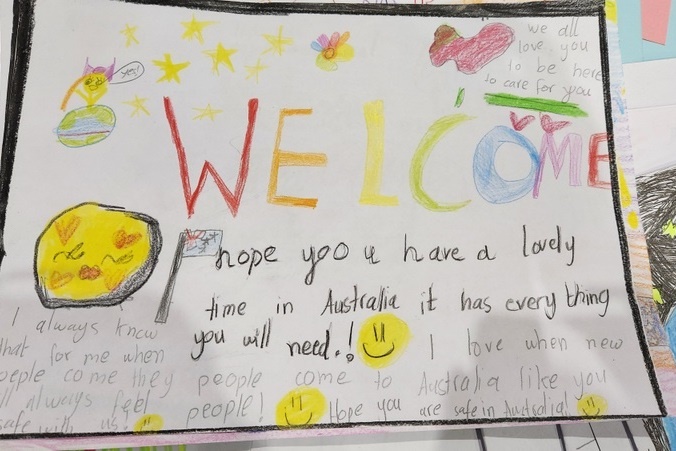 we all
love you
to be here
so care for you
yes!
WELCOME
hope yoo u have a lovely
time in Australia it has every thing
you will need.!
I always know
that for me when
people come they
always feel
safe with us!
I love when new
people come to Australia like you
people! Hope you are safe in Australia!